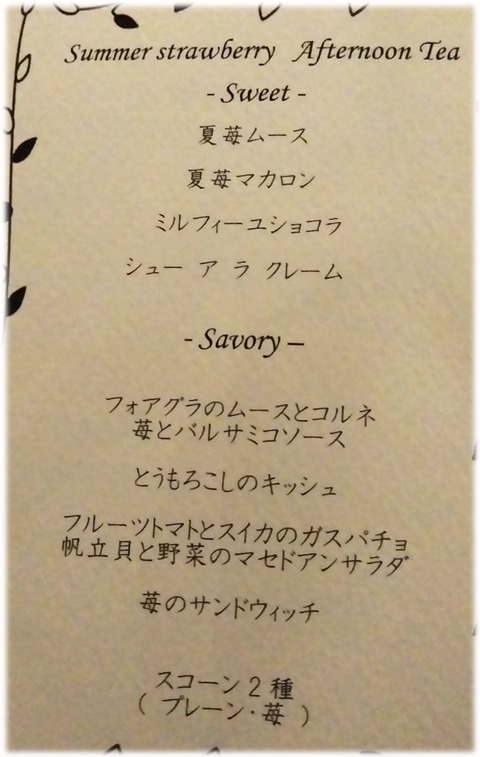 Summer strawberry Afternoon Tea
- Sweet -
夏苺ムース
夏苺マカロン
ミルフィーユショコラ
シュー ア ラ クレーム
- Savory –
フォアグラのムースとコルネ
苺とバルサミコソース
とうもろこしのキッシュ
フルーツトマトとスイカのガスパチョ
帆立貝と野菜のマセドアンサラダ
苺のサンドウィッチ
スコーン2種
( プレーン・苺 )